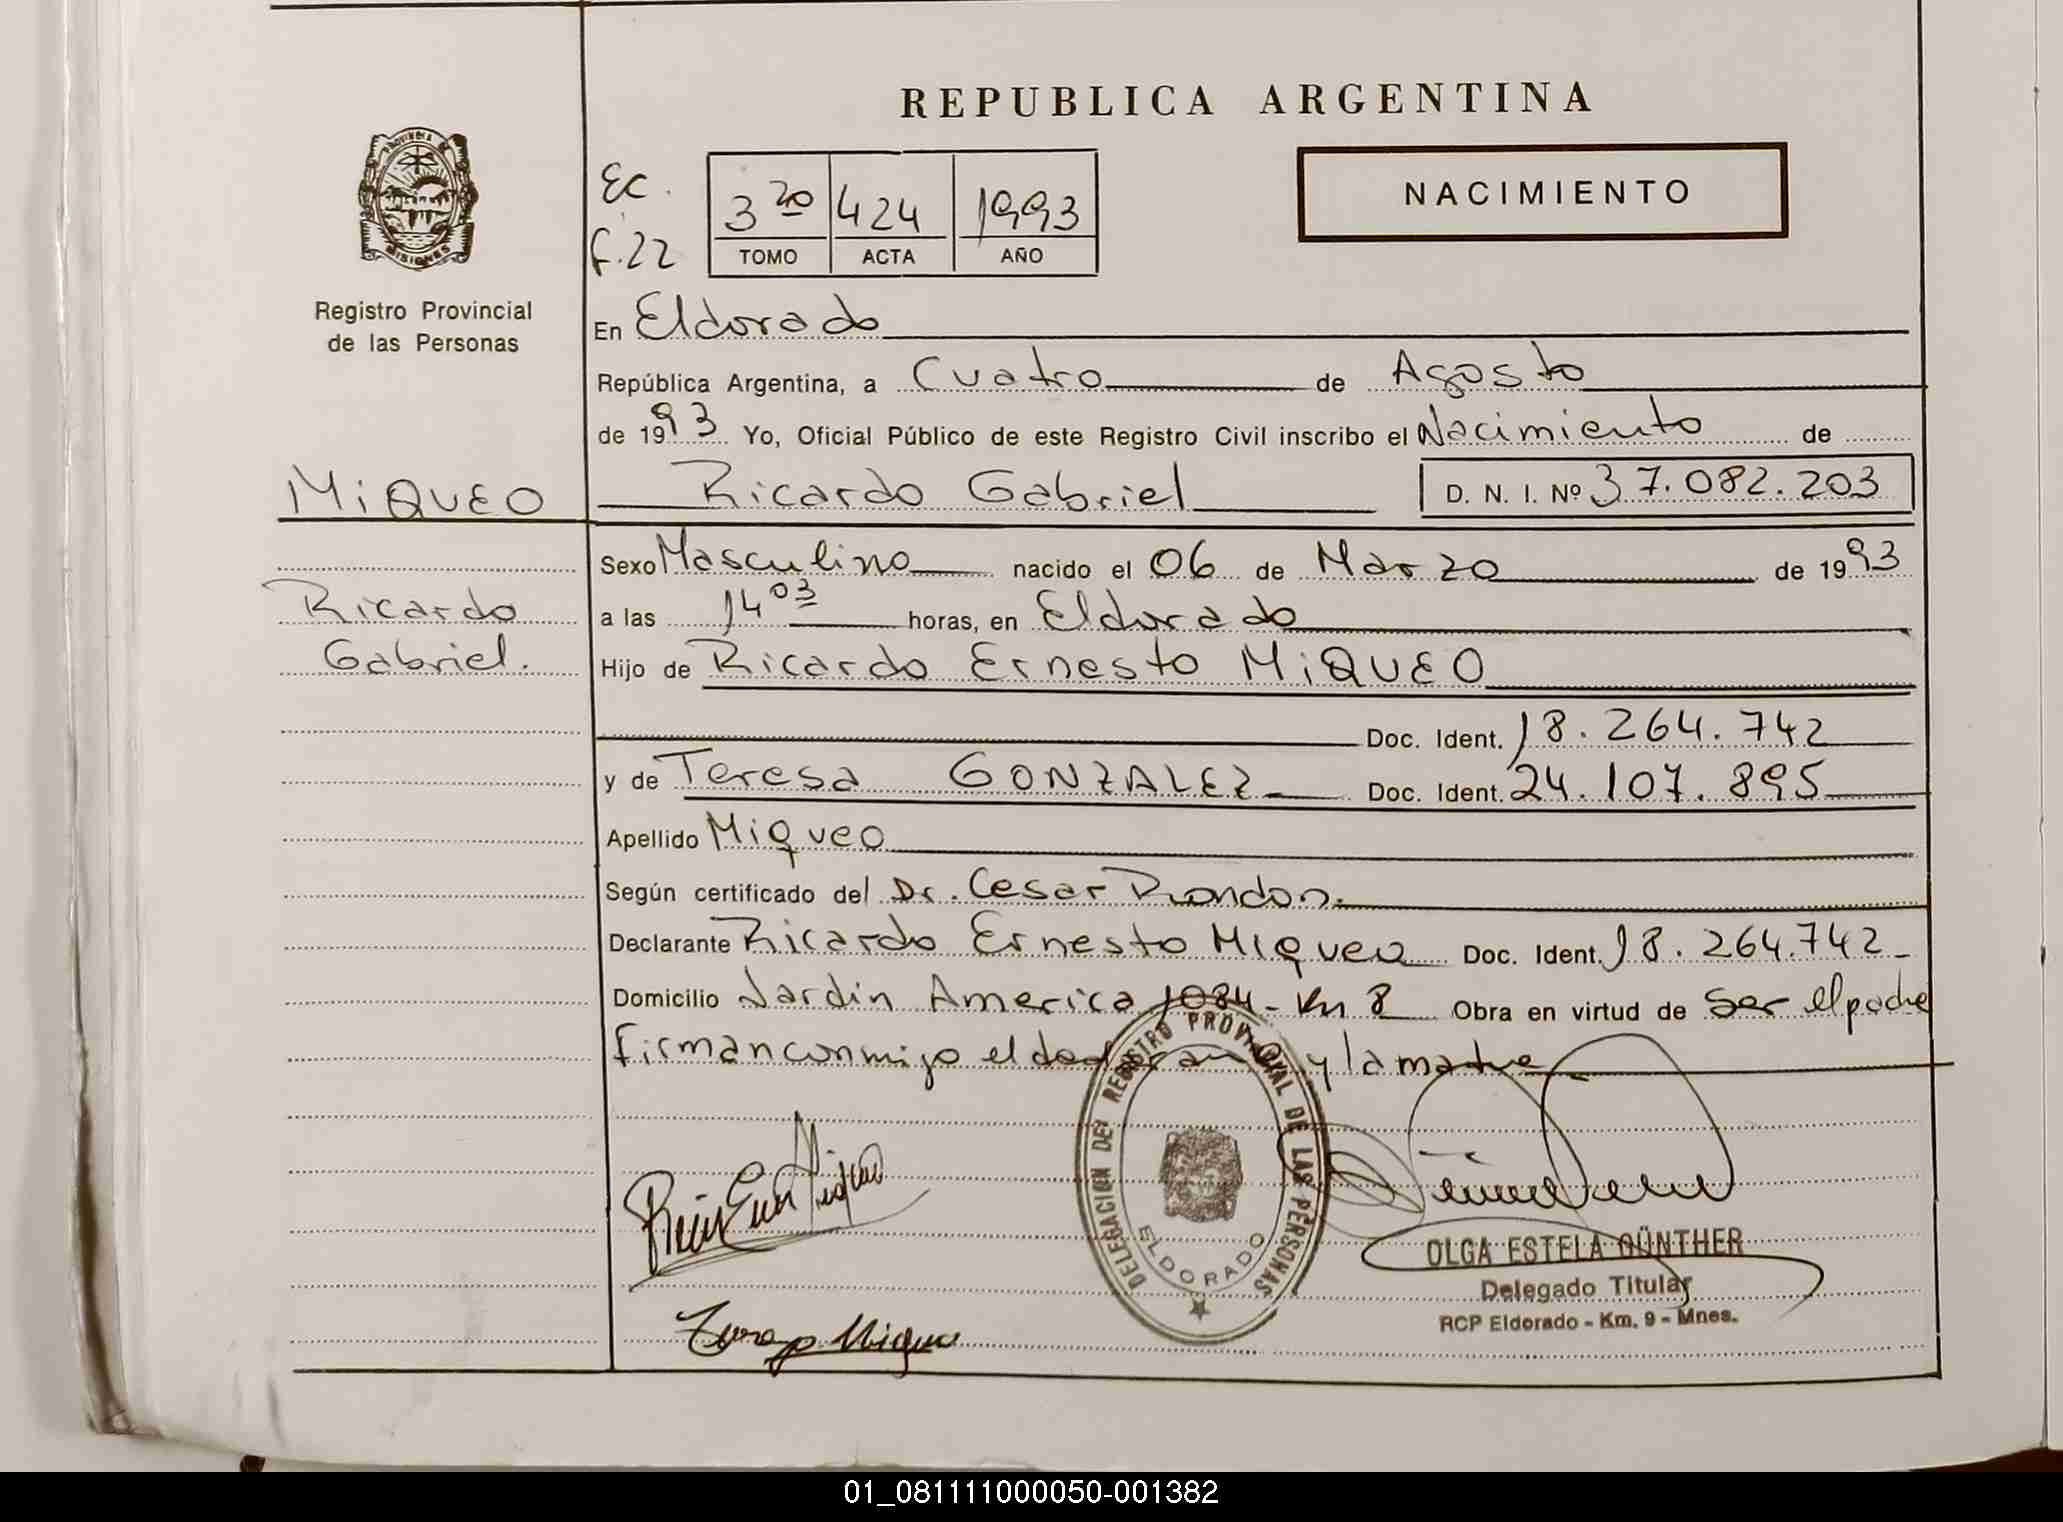 REPUBLICA ARGENTINA
NACIMIENTO
PROVINCIA DE MISIONES
Registro Provincial
de las Personas
EC.
F.22
3 20 424 1993
TOMO ACTA AÑO
En Eldorado
República Argentina, a Cuatro de Agosto
de 1993 Yo, Oficial Público de este Registro Civil inscribo el Nacimiento de
MiQUEO
Ricardo Gabriel D. N. I. Nº 37.082.203
Sexo Masculino nacido el 06 de Marzo de 1993
Ricardo
Gabriel.
a las 14 03 horas, en Eldorado
Hijo de Ricardo Ernesto MiQUEO
Doc. Ident. 18.264.742
y de Teresa GONZALEZ Doc. Ident. 24.107.895
Apellido Miqueo
Según certificado del Dr. Cesar Rondon.
Declarante Ricardo Ernesto Miqueo Doc. Ident. 18.264.742
Domicilio Jardin America 1084 - Km 8 Obra en virtud de ser el padre
Firman conmigo el y la madre
DELEGACION DEL REGISTRO PROVINCIAL DE LAS PERSONAS
ELDORADO
OLGA ESTELA GÜNTHER
Delegado Titular
RCP Eldorado - Km. 9 - Mnes.
01_081111000050-001382